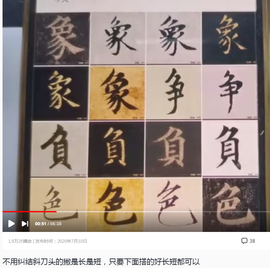 象 象 象 象
象 象 争 争
負 負 負 負
色 色 色 色
00:01 / 00:38
38
不用纠结斜刀头的撇是长是短，只要下面搭的好长短都可以